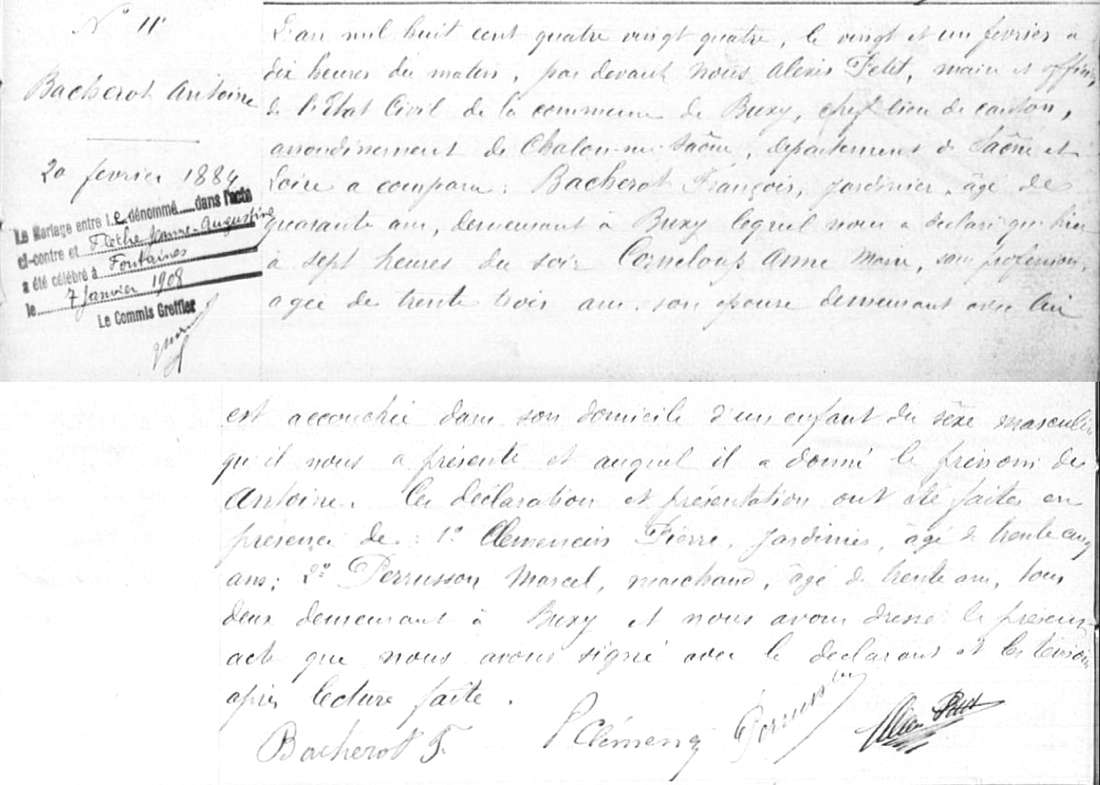 N° 11
Bacherot Antoine
20 février 1884
Le Mariage entre le dénommé dans l'acte
ci-contre et Flèche Jeanne-Augustine
a été célébré à Fontaines
le 7 janvier 1908
Le Commis Greffier
L'an mil huit cent quatre vingt quatre, le vingt et un février à
dix heures du matin, par devant nous Alexis Petit, maire et officier
de l'Etat Civil de la commune de Buxy, chef lieu de canton,
arrondissement de Chalon-sur-Saône, département de Saône et
Loire a comparu : Bacherot François, jardinier, âgé de
quarante ans, demeurant à Buxy lequel nous a déclaré que hier
à sept heures du soir Corneloup Anne Marie, sans profession,
agée de trente trois ans, son épouse demeurant avec lui
est accouchée dans son domicile d'un enfant du sèxe masculin
qu'il nous a présenté et auquel il a donné le prénom de
Antoine. Ces déclaration et présentation ont été faites en
présence de : 1° Clemencin Pierre, jardinier, âgé de trente cinq
ans ; 2° Perrusson Marcel, marchand, âgé de trente ans, tous
deux demeurant à Buxy et nous avons dressé le présent
acte que nous avons signé avec le déclarant et les témoins
après lecture faite.
Bacherot F. P Clémenç Perrusson Alexis Petit